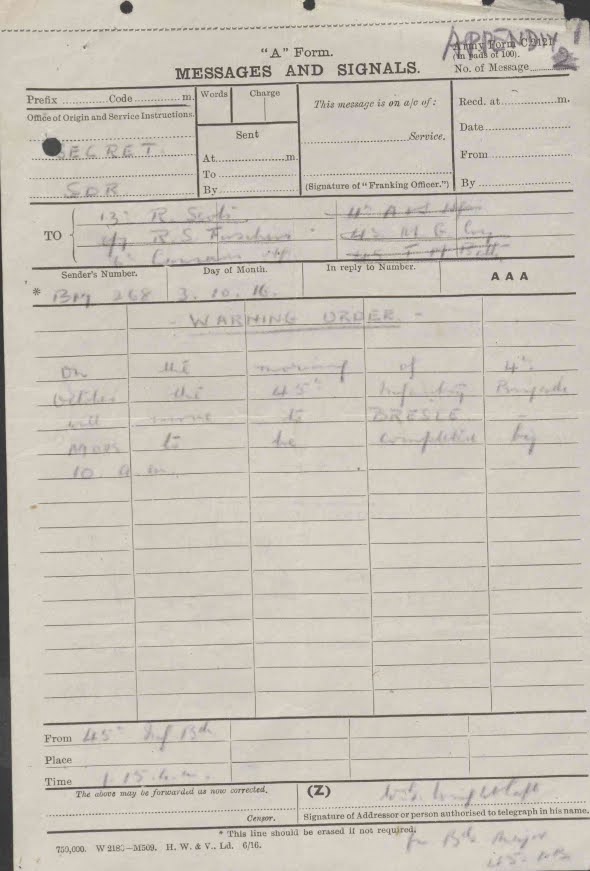 APPENDIX
2
"A" Form.
Army Form C2121
(in pads of 100).
MESSAGES AND SIGNALS.
No. of Message
Prefix Code m.
Words Charge
This message is on a/c of:
Recd. at m.
Office of Origin and Service Instructions.
Sent
Date
SECRET
Service.
At m.
From
SDR
To
By
(Signature of "Franking Officer.")
By
TO
13th R. Scots
4th A & S
6/7 R.S. Fusiliers
45 M G Coy
6th Camerons
45 T M Batty
Sender's Number.
Day of Month.
In reply to Number.
A A A
* BM 268 3.10.16.
- WARNING ORDER. -
On the morning of 4th
October the 45th Infantry Brigade
will move to BRESLE -
Move to be completed by
10 a m.
From 45th Inf Bde
Place
Time 1.15
The above may be forwarded as now corrected.
(Z)
Wright Capt
Censor.
Signature of Addressor or person authorised to telegraph in his name.
* This line should be erased if not required.
750,000. W 2186-M509. H. W. & V., Ld. 6/16.
for Bde Major